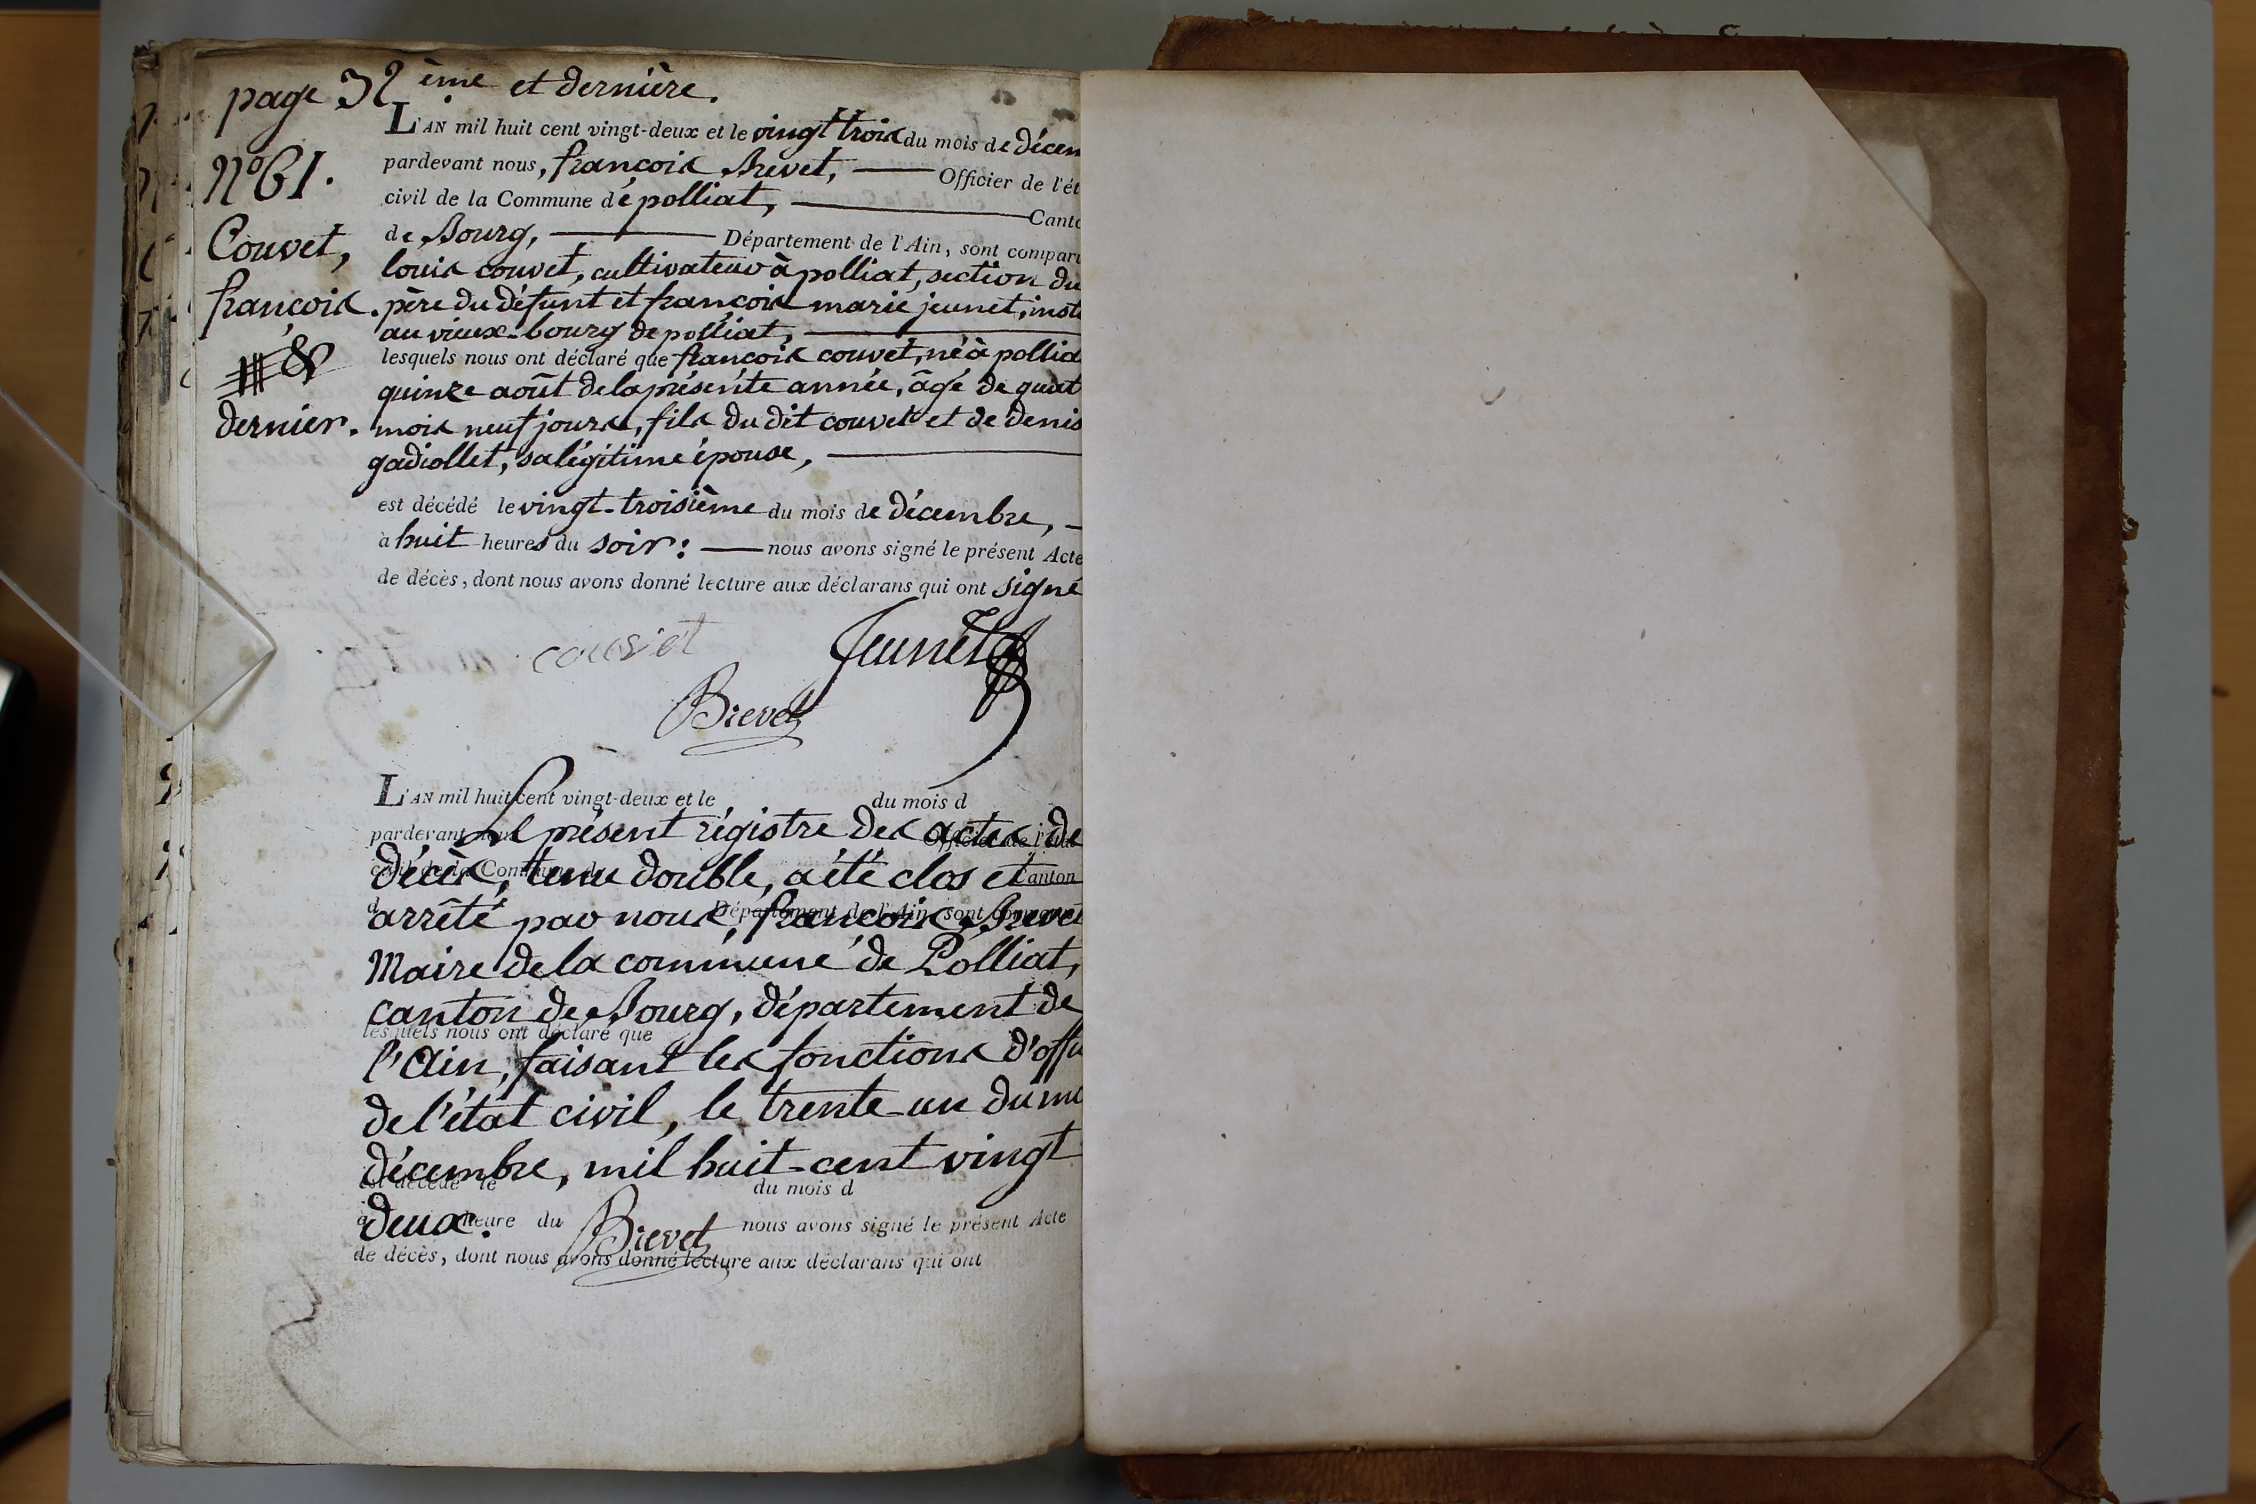 page 32 ème et dernière.
L'AN mil huit cent vingt-deux et le vingt trois du mois de décem
pardevant nous, françois Brevet, Officier de l'ét
civil de la Commune de polliat, Canto
de Bourg, Département de l'Ain, sont comparu
louis couvet, cultivateur à polliat, section du
père du défunt et françois marie jeunet, insti
au vieux-bourg de polliat,
lesquels nous ont déclaré que françois couvet, né à pollia
quinze août de la présente année, âgé de quat
mois neuf jours, fils du dit couvet et de denis
gadiollet, sa légitime épouse,
est décédé le vingt-troisième du mois de décembre,
à huit heures du soir: nous avons signé le présent Acte
de décès, dont nous avons donné lecture aux déclarans qui ont signé
N° 61.
Couvet,
françois.
dernier.
couvet
Jeunet
Brevet
L'AN mil huit cent vingt-deux et le du mois d
pardevant nous Officier de l'état
civil de la Commune d Canton
d Département de l'Ain, sont comparus
Le présent régistre des actes de
décès, tenu double, a été clos et
arrêté par nous, françois Brevet
Maire de la commune de Polliat,
canton de Bourg, département de
lesquels nous ont déclaré que
l'Ain, faisant les fonctions d'offi
de l'état civil, le trente-un du m
décembre, mil huit-cent vingt
est décédé le du mois d
deux.
à heure du nous avons signé le présent Acte
Brevet
de décès, dont nous avons donné lecture aux déclarans qui ont